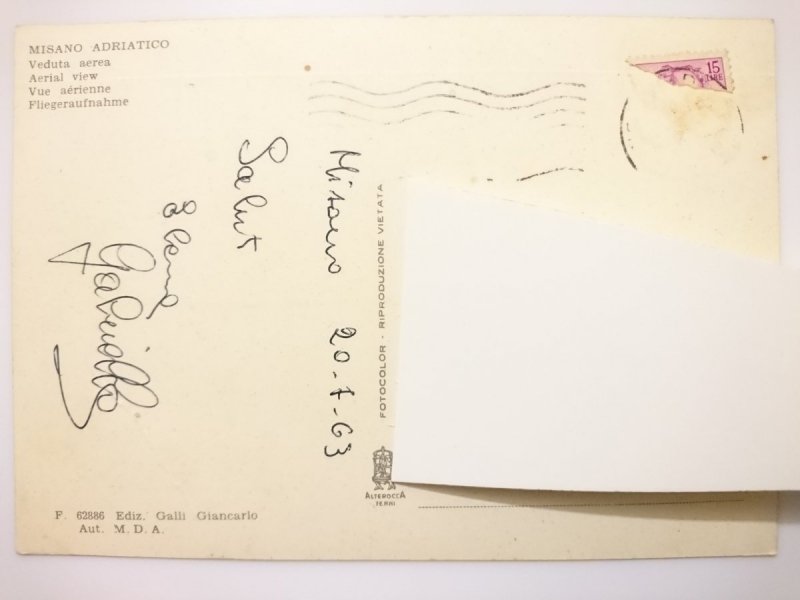 MISANO ADRIATICO
Veduta aerea
Aerial view
Vue aérienne
Fliegeraufnahme
15
LIRE
Misano 20-7-63
Saluti
FOTOCOLOR - RIPRODUZIONE VIETATA
ALTEROCCA
TERNI
F. 62886 Ediz. Galli Giancarlo
Aut. M. D. A.